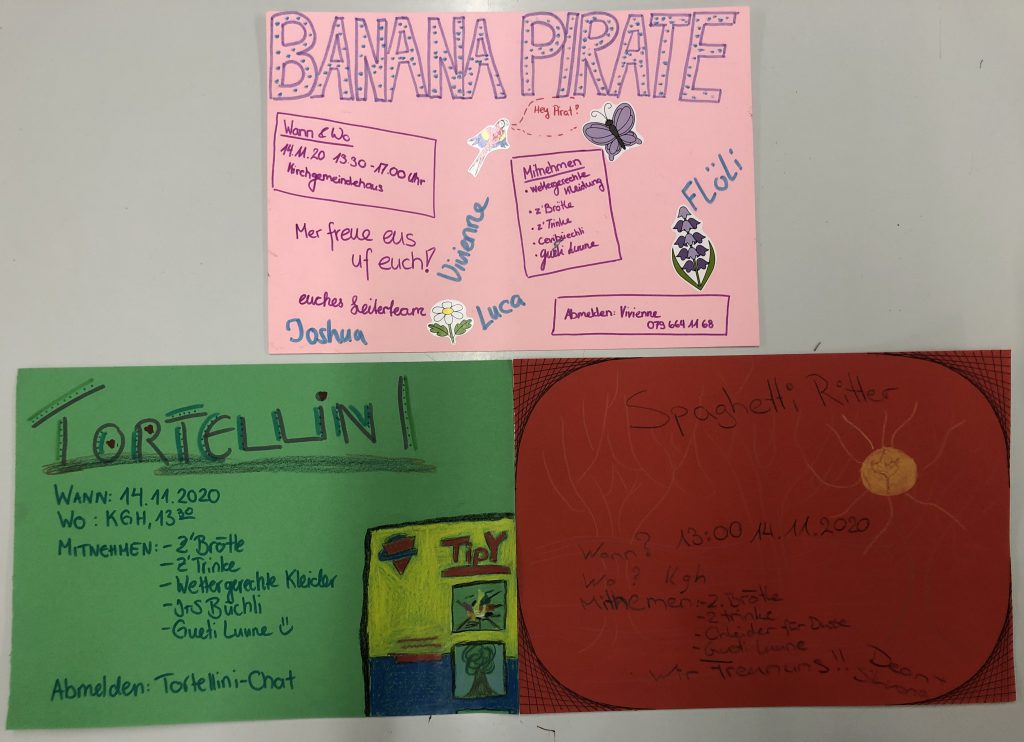 BANANA PIRATE
Hey Pirat?
Wann & Wo
14.11.20 13.30-17.00 Uhr
Kirchgemeindehaus
Mitnehmen
• Wettergerechte Kleidung
• z'Brötle
• z'Trinke
• Cevibüechli
• gueti Luune
FLöLi
Mer freue eus
uf euch!
Vivienne
euches Leiterteam
Joshua
Luca
Abmelden: Vivienne
079 664 11 68
TORTELLINI
WANN: 14.11.2020
WO: KGH, 13 30
MITNEHMEN: - Z'Brötle
- Z'Trinke
- Wettergerechte Kleider
- JrS Büchli
- Gueti Luune
Abmelden: Tortellini-Chat
TipY
Spaghetti Ritter
Wann? 13:00 14.11.2020
Wo? Kgh
Mitnemen: - Z. Brötle
- Z trinke
- Chleider für Dusse
- Gueti Luune
Wir Freununs!! Dean